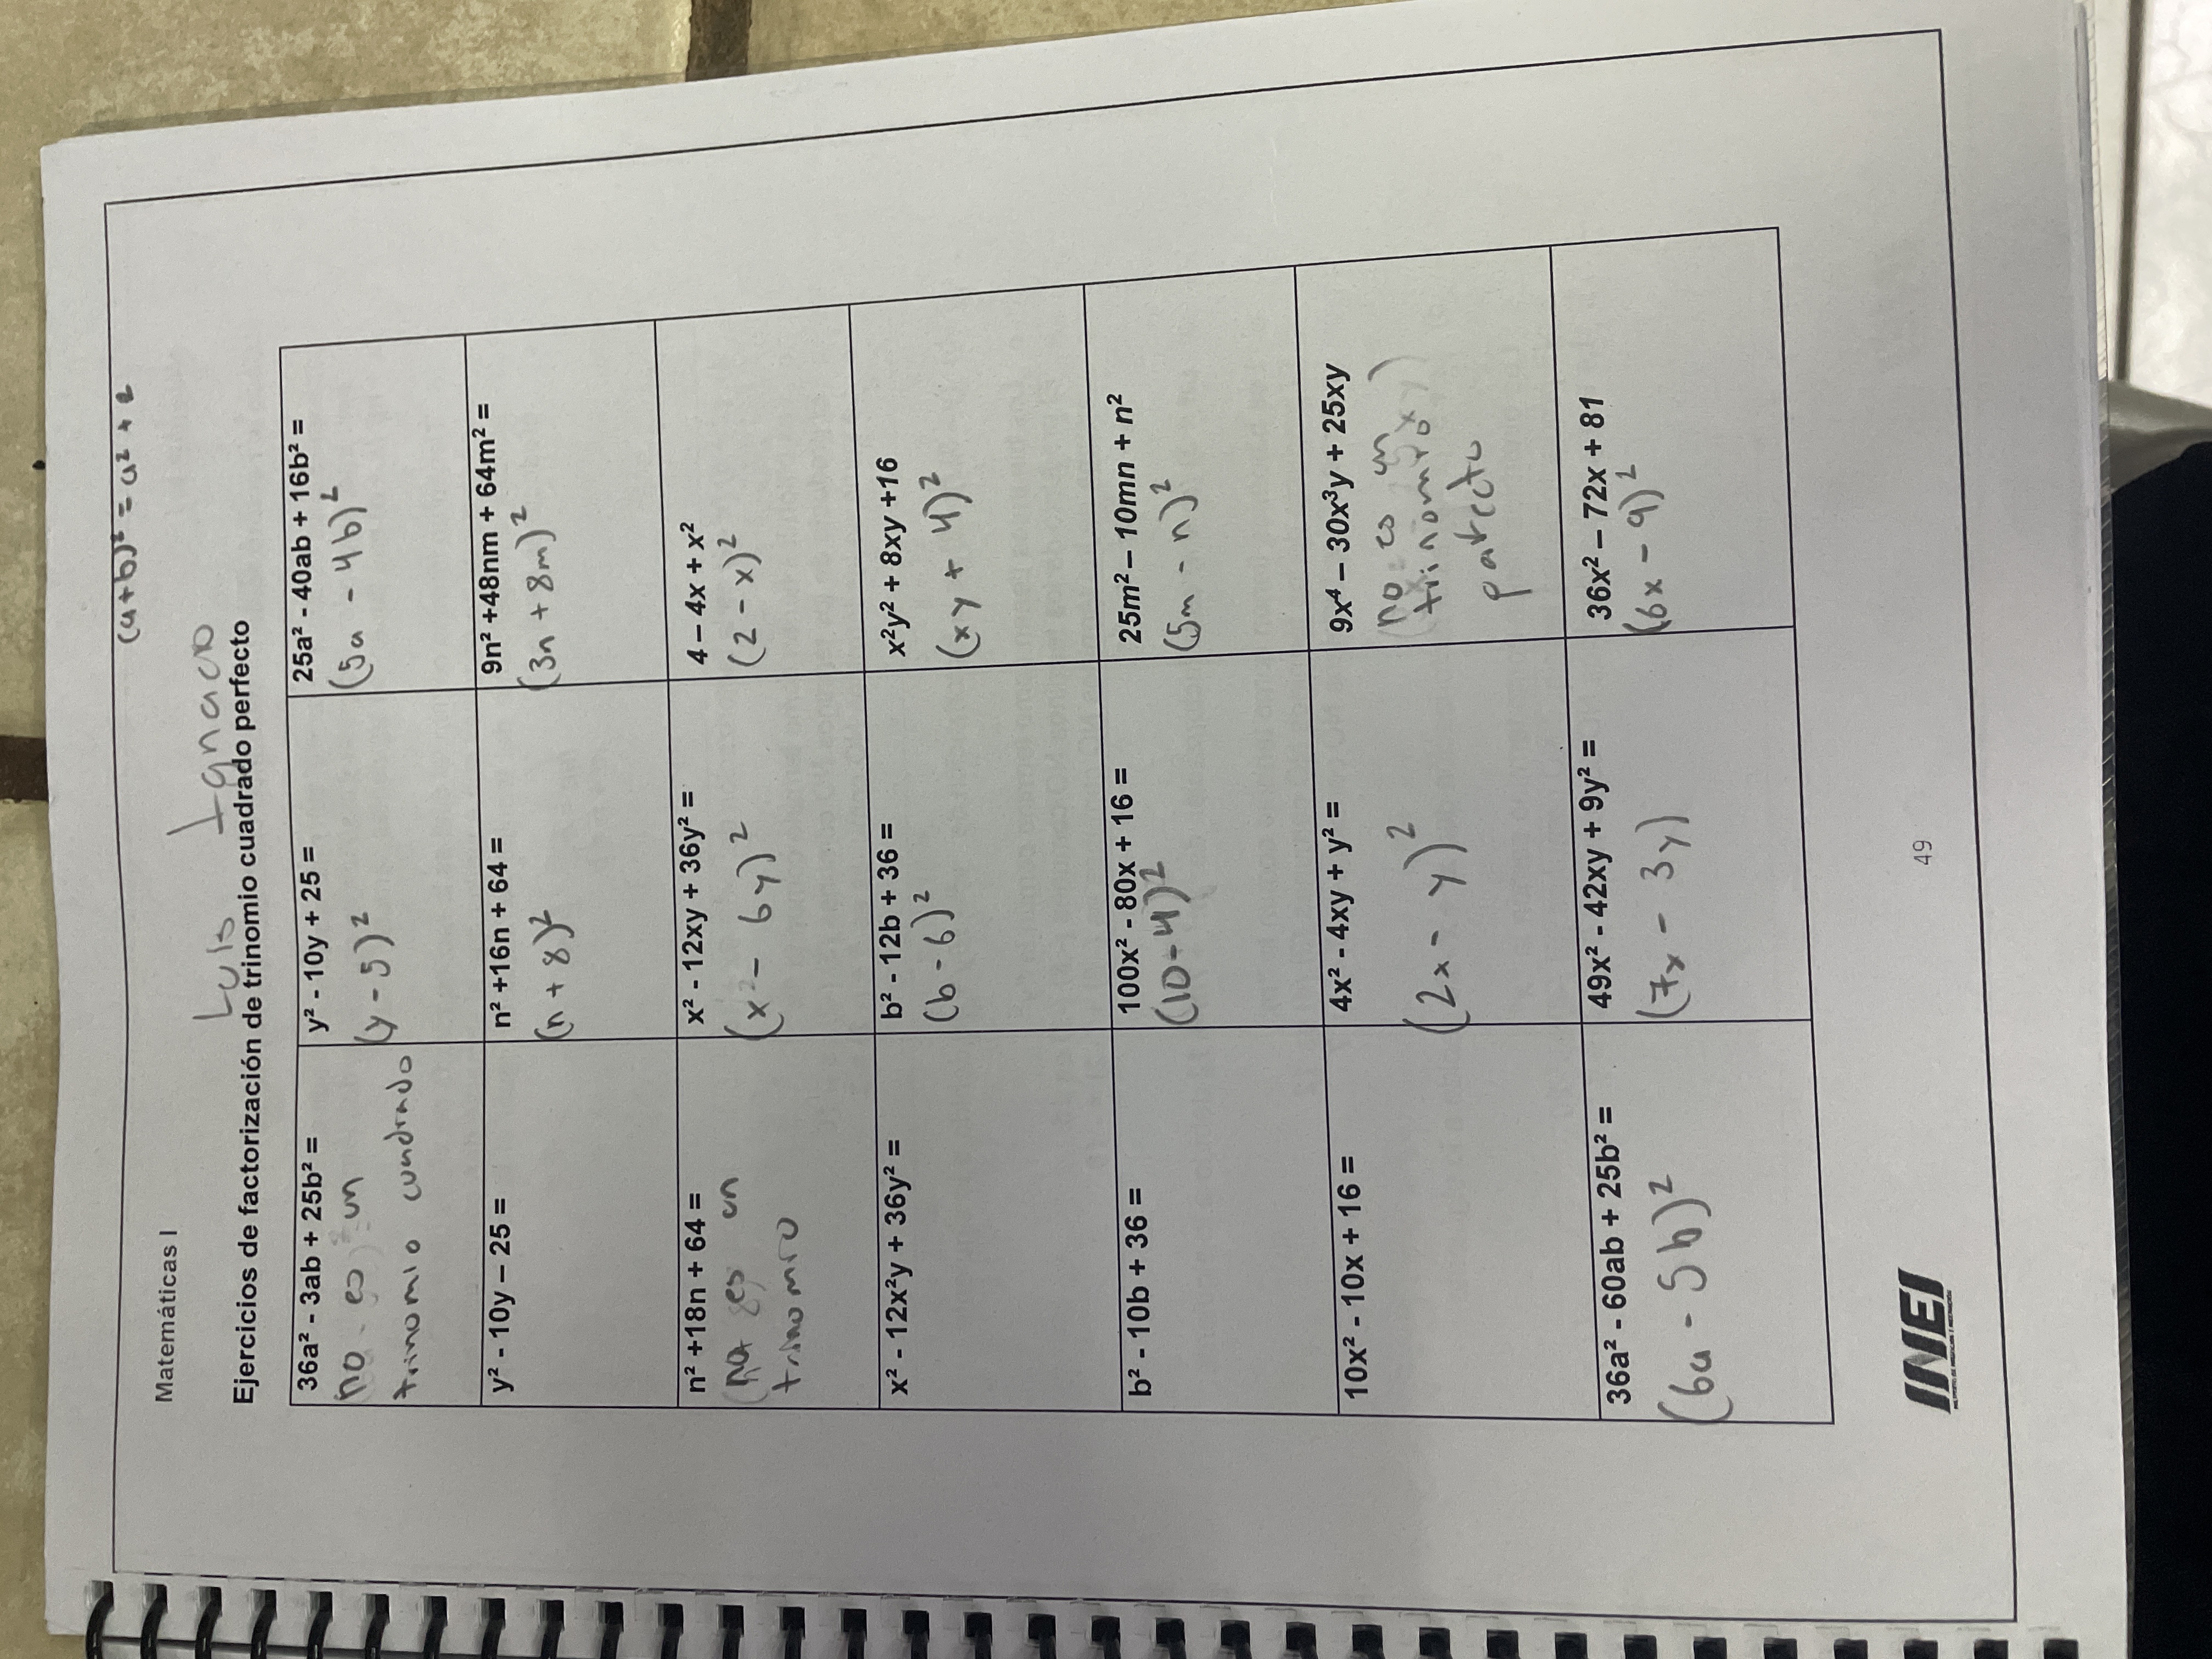 (a+b)² = a² + 2
Matemáticas I
Luis Ignacio
Ejercicios de factorización de trinomio cuadrado perfecto
36a² - 3ab + 25b² =
no es un
trinomio cuadrado
y² - 10y + 25 =
(y - 5)²
25a² - 40ab + 16b² =
(5a - 4b)²
y² - 10y – 25 =
n² +16n + 64 =
(n + 8)²
9n² +48nm + 64m² =
(3n + 8m)²
n² +18n + 64 =
no es un
trinomio
x² - 12xy + 36y² =
(x² - 6y)²
4 – 4x + x²
(2 - x)²
x² - 12x²y + 36y² =
b² - 12b + 36 =
(b - 6)²
x²y² + 8xy +16
(xy + 4)²
b² - 10b + 36 =
100x² - 80x + 16 =
(10 - 4)²
25m² – 10mn + n²
(5m - n)²
10x² - 10x + 16 =
4x² - 4xy + y² =
(2x - y)²
9x⁴ – 30x³y + 25xy
no es un
trinomio
36a² - 60ab + 25b² =
(6a - 5b)²
49x² - 42xy + 9y² =
(7x - 3y)
36x² – 72x + 81
(6x - 9)²
INEI
49